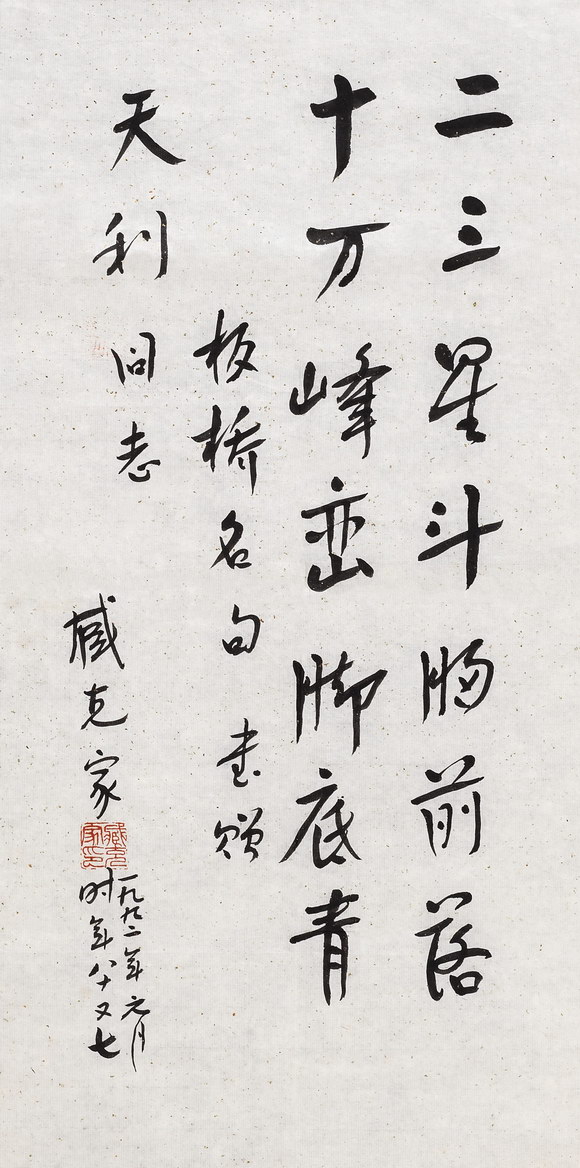 二三星斗胸前落
十万峰峦脚底青
板桥名句 书赠
天利同志
臧克家
一九九二年元月
时年八十又七
臧克家印